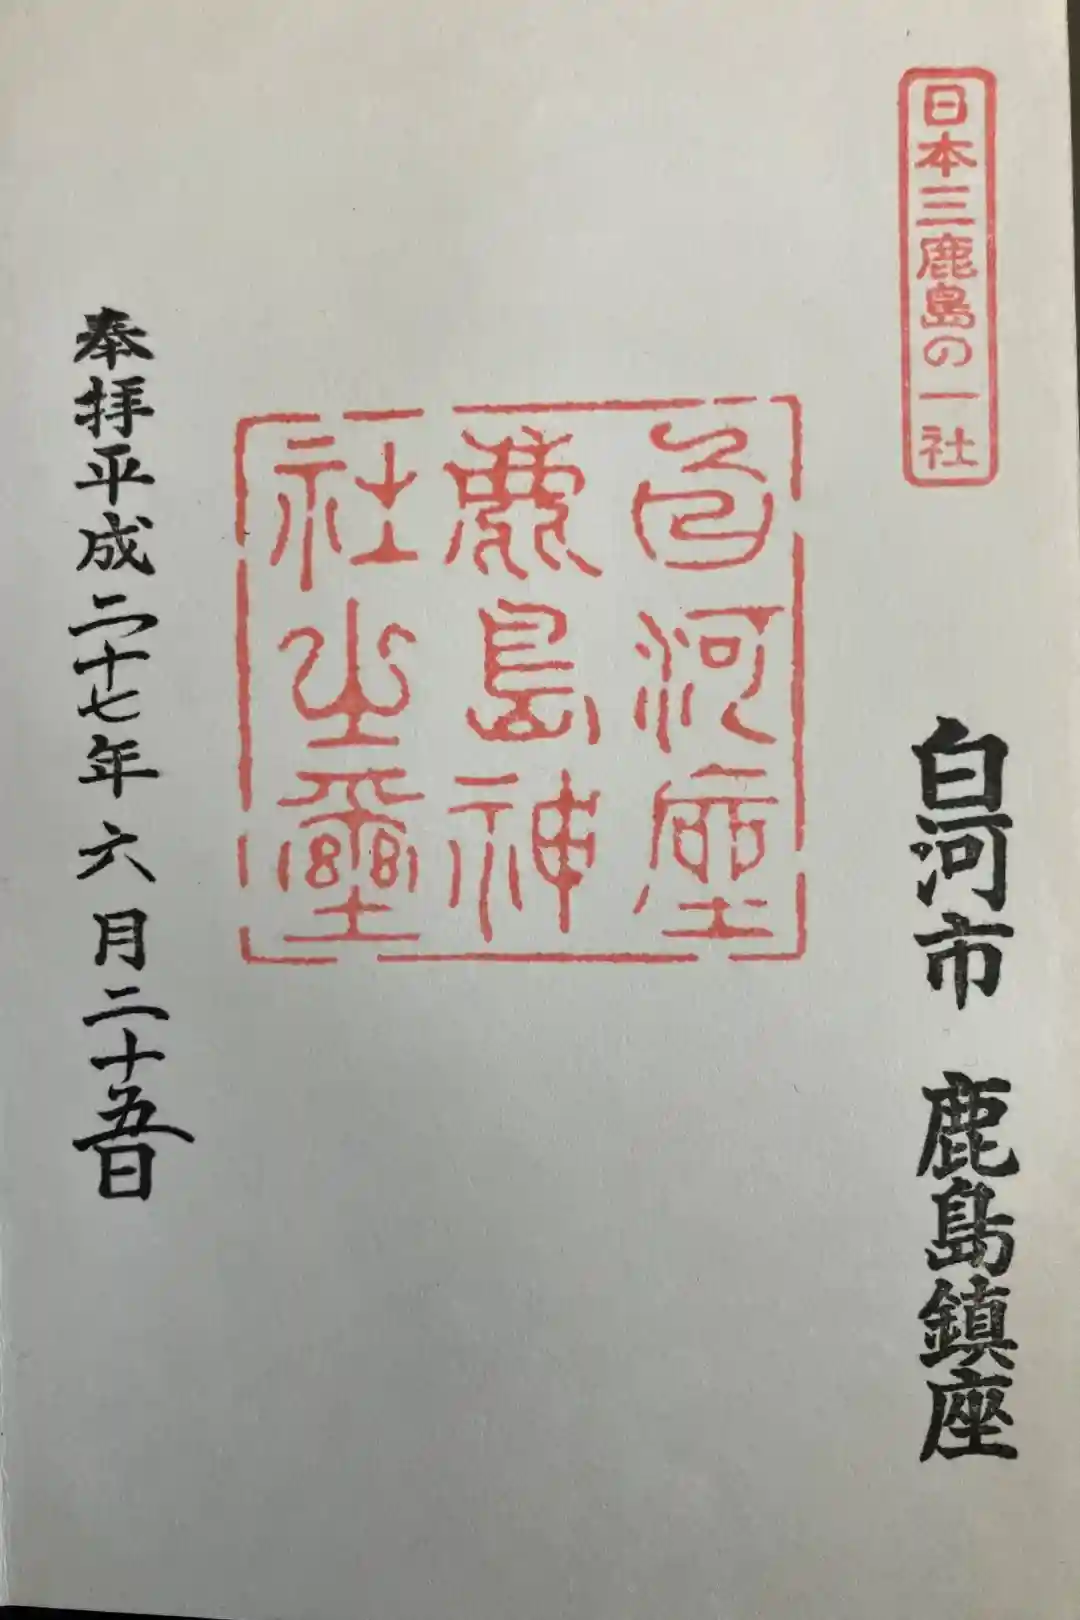 日本三鹿島の一社
白河市 鹿島鎮座
白河座
鹿島神
社之璽
奉拝平成二十七年六月二十五日